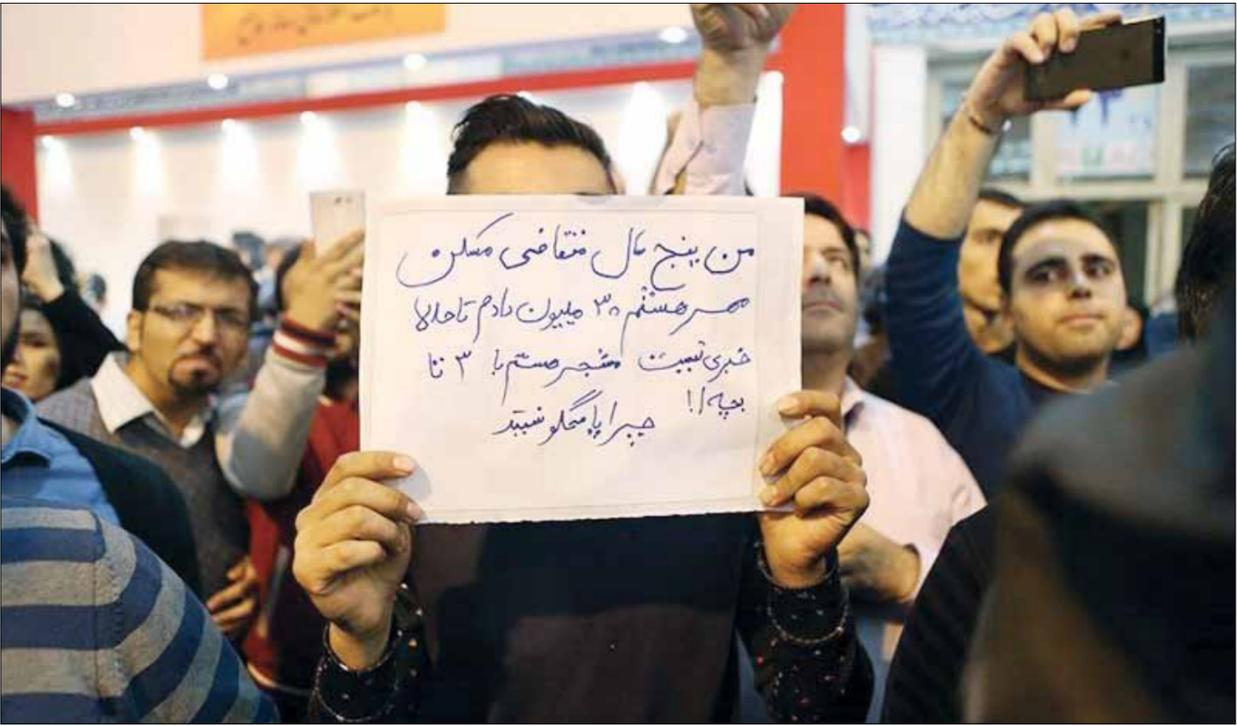 من پنج سال متقاضی مسکن
مهر هستم ۳۰ میلیون دادم تا حالا
خبری نیست مستجر هستم با ۳ تا
بچه!!
چرا پاسخگو نیستید